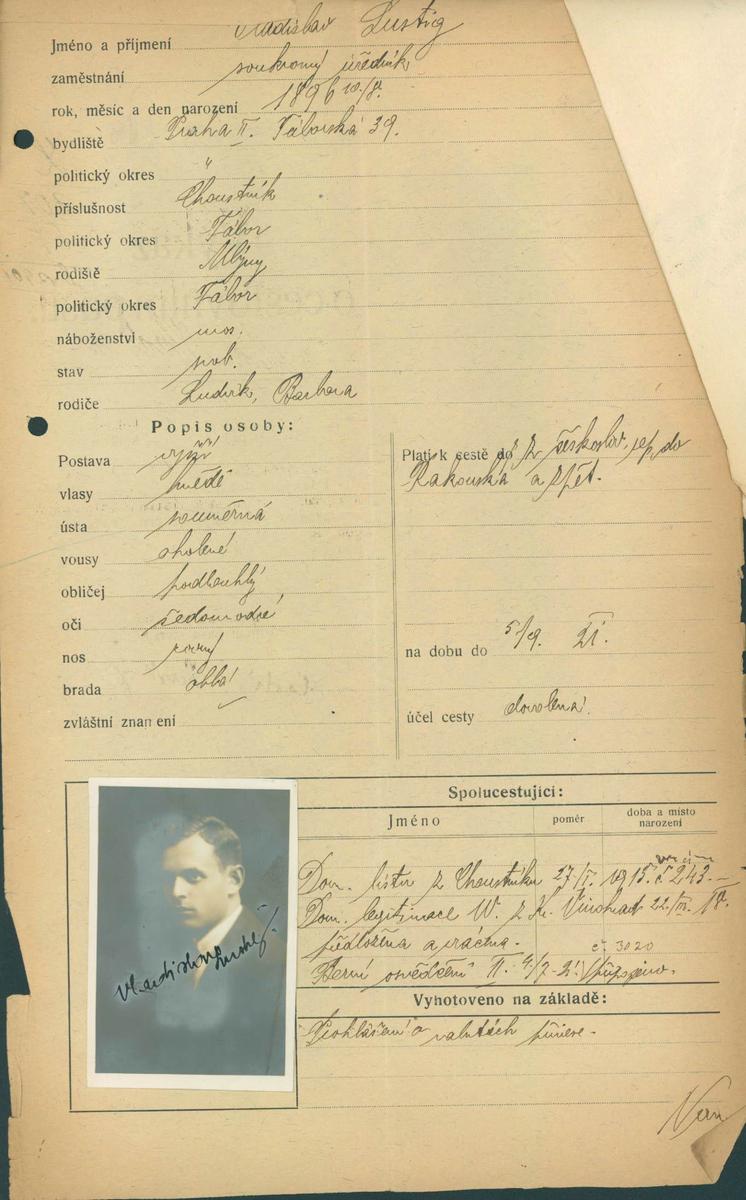 Jméno a příjmení Vladislav Lustig
zaměstnání soukromý úředník
rok, měsíc a den narození 1896 10/8.
bydliště Praha II. Táborská 39.
politický okres "
příslušnost Choustník
politický okres Tábor
rodiště Mlýny
politický okres Tábor
náboženství mos.
stav svob.
rodiče Ludvík, Barbora
Popis osoby:
Postava vyšší
vlasy hnědé
ústa souměrná
vousy oholené
obličej podlouhlý
oči šedomodré
nos rovný
brada oblá
zvláštní znamení
Platí k cestě do z českoslov. rep. do
Rakouska a zpět.
na dobu do 5/9. 21.
účel cesty dovolená.
Spolucestující:
Jméno poměr doba a místo
narození
Dom. list z Choustníku 27/I. 1915. č 243.
Dom. legitimace z Kr. Vinohrad 22./ 18.
č. 3020
předložena a vrácena.
Berní osvědčení II. 4/7-21
Vyhotoveno na základě:
Prohlášení o valutách
Vladislav Lustig.